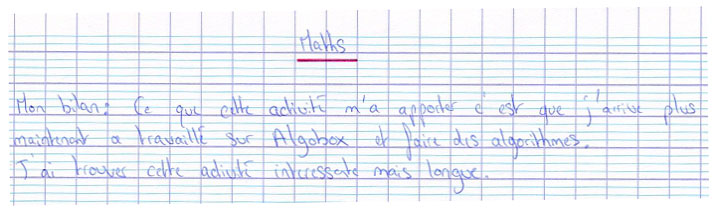 Maths
Mon bilan: Ce que cette activité m'a apporter c'est que j'arrive plus
maintenant a travaillé sur Algobox et faire des algorithmes.
J'ai trouver cette activité interessate mais longue.